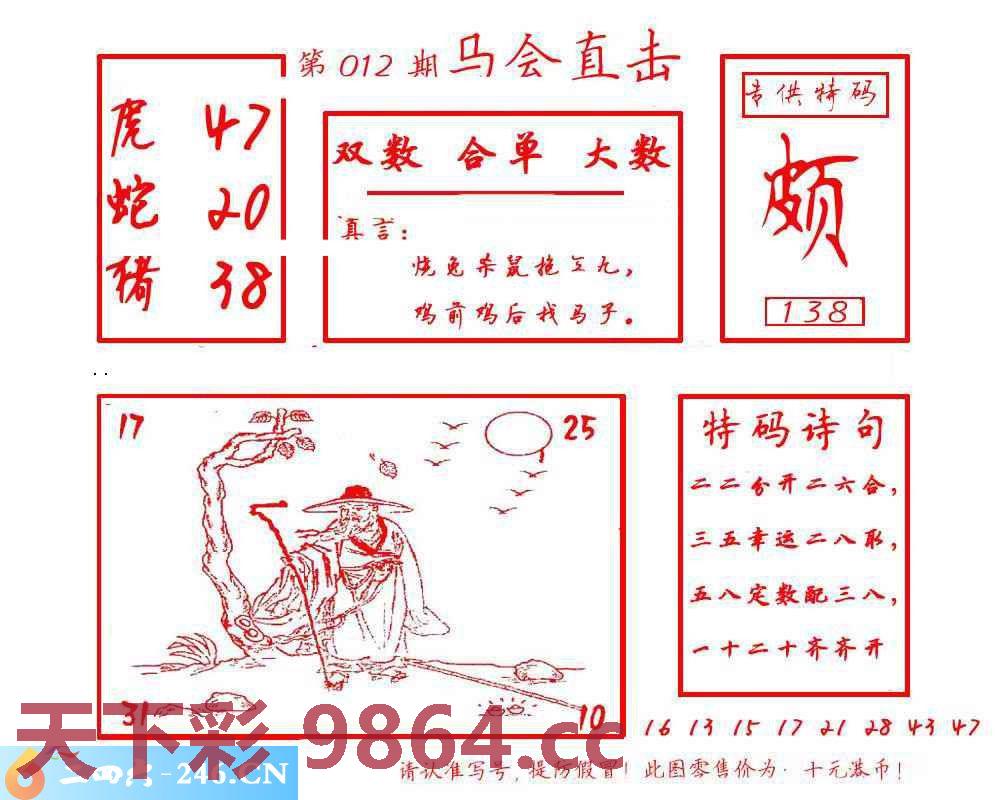 第012期马会直击
虎 47
蛇 20
猪 38
双数 合单 大数
真言：
烧兔杀鼠拖三九，
鸡前鸡后找马子。
专供特码
颇
138
17
25
31
10
特码诗句
二二分开二六合，
三五幸运二八取，
五八定数配三八，
一十二十齐齐开
16 13 15 17 21 28 43 47
天下彩 9864.cc
246.CN
请认准写号，提防假冒！此图零售价为·十元港币！